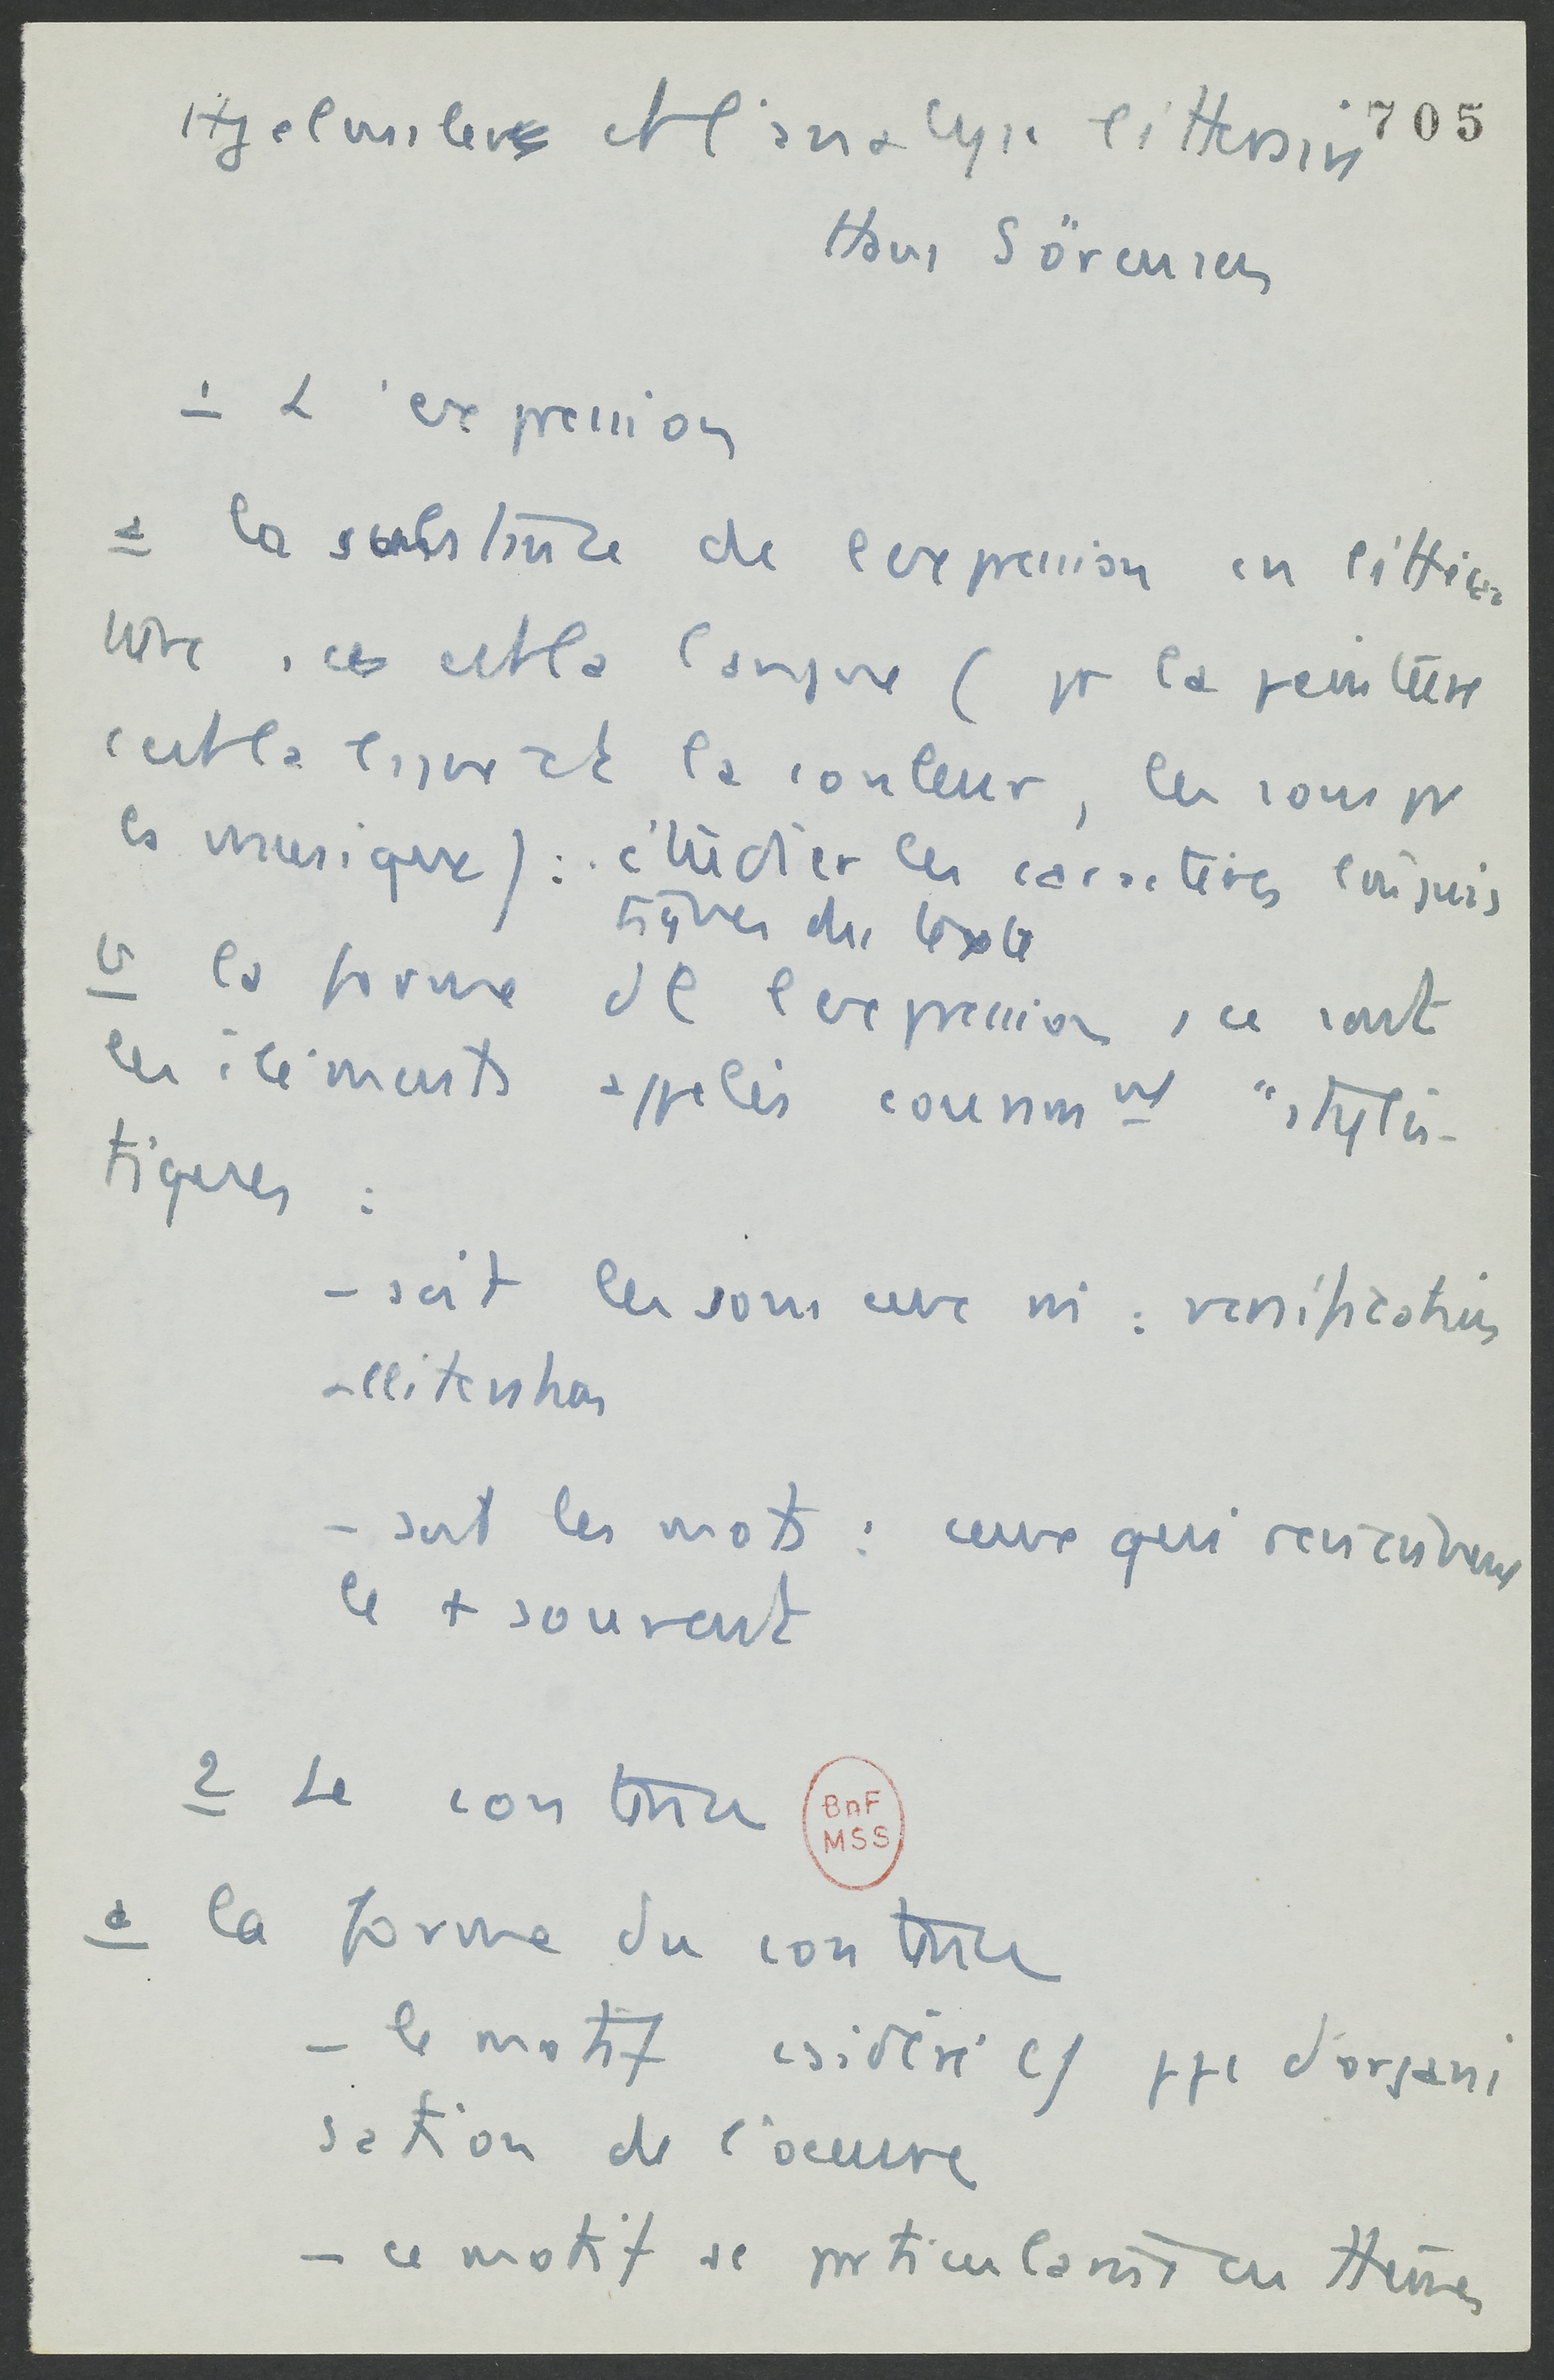 Hjelmslev et l'analyse littéraire
705
Hans Sörensen
1 L'expression
a la substance de l'expression en littéra
ture, c'est la langue (pr la peinture
c'est la ligne et la couleur, les sons pr
la musique) : étudier les caractères linguis
tiques du texte
b la forme de l'expression, ce sont
les éléments appelés couramnt "stylis-
tiques :
- soit les sons eux mi : versification
allitération
- soit les mots : ceux qui reviennent
le + souvent
2 Le contenu
BnF
MSS
a la forme du contenu
- le motif csidéré c/ ppe d'organi
sation de l'oeuvre
- ce motif se prticularise en thèmes